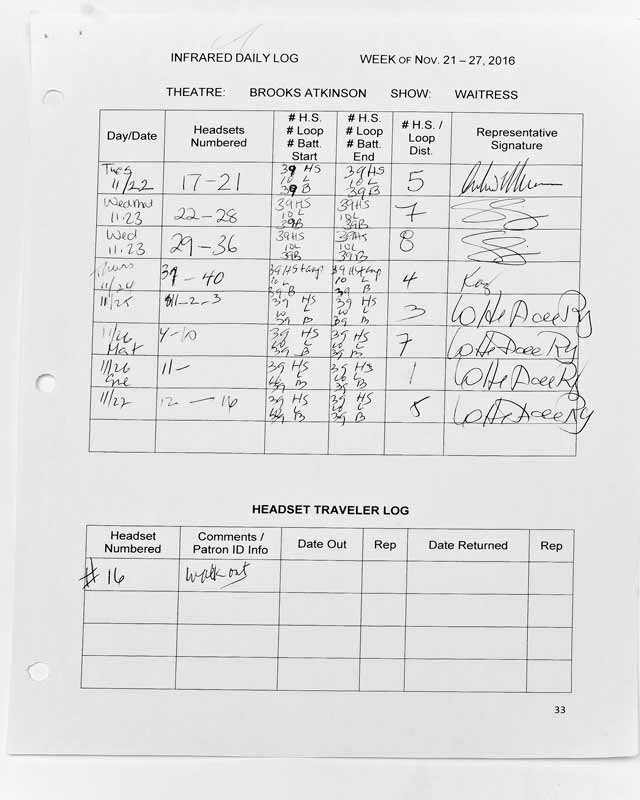 INFRARED DAILY LOG WEEK OF NOV. 21 – 27, 2016
THEATRE: BROOKS ATKINSON SHOW: WAITRESS
Day/Date Headsets Numbered # H.S. # Loop # Batt. Start # H.S. # Loop # Batt. End # H.S. / Loop Dist. Representative Signature
Tues 11/22 17-21 39 HS 10 L 39 B 39 HS 10 L 39 B 5
Wed Mat 11.23 22-28 39 HS 10 L 39 B 39 HS 10 L 39 B 7
Wed 11.23 29-36 39 HS 10 L 39 B 39 HS 10 L 39 B 8
Thurs 11/24 - 40 39 HS 10 L 39 B 39 HS 10 L 39 B 4
11/25 1-2-3 39 HS 10 L 39 B 39 HS 10 L 39 B 3
11/26 Mat 4-10 39 HS 10 L 39 B 39 HS 10 L 39 B 7
11/26 Eve 11- 39 HS 10 L 39 B 39 HS 10 L 39 B 1
12-16 39 HS 10 L 39 B 39 HS 10 L 39 B 5
HEADSET TRAVELER LOG
Headset Numbered Comments / Patron ID Info Date Out Rep Date Returned Rep
# 16 walk out
33